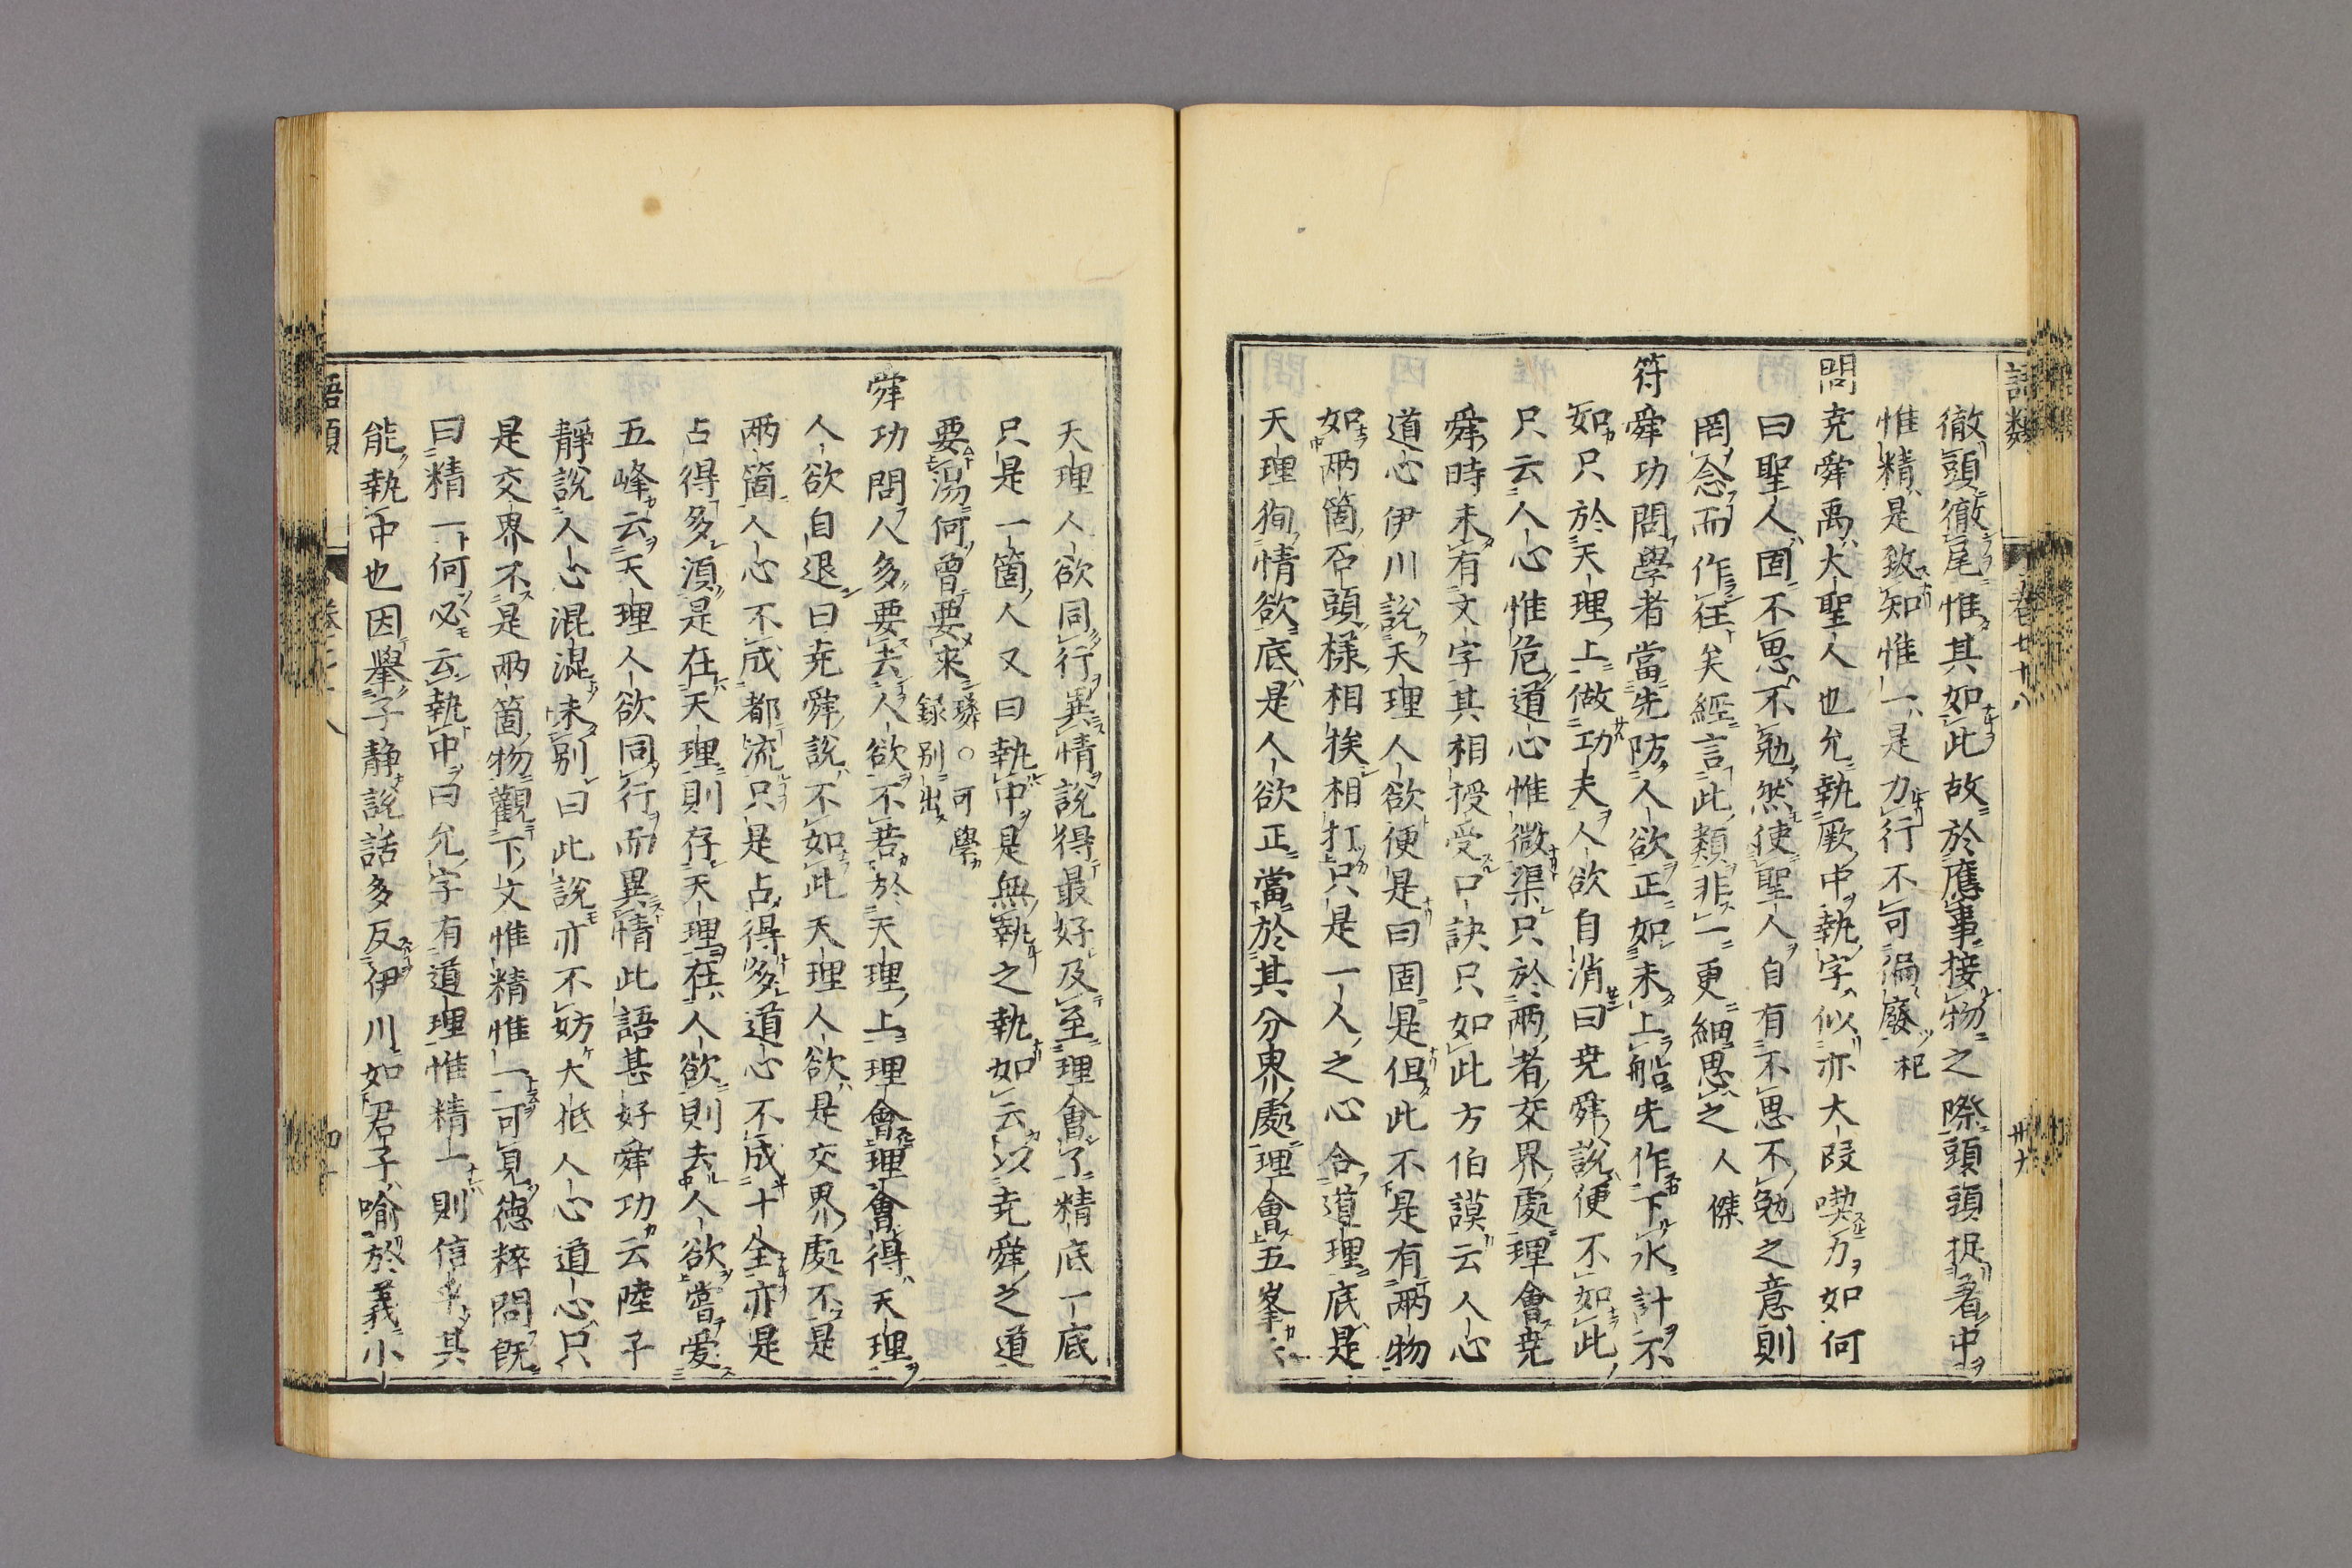 語類
卷七十八
卅九
徹頭徹尾惟其如此故於應事接物之際頭頭捉著中
惟精是致知惟一是力行不可偏廢 杞
問堯舜禹大聖人也允執厥中執字似亦大段喫力如何
曰聖人固不思不勉然使聖人自有不思不勉之意則
罔念而作狂矣經言此類非一更細思之 人傑
符舜功問學者當先防人欲正如未上船先作下水計不
如只於天理上做功夫人欲自消曰堯舜說便不如此
只云人心惟危道心惟微渠只於兩者交界處理會堯
舜時未有文字其相授受口訣只如此方伯謨云人心
道心伊川說天理人欲便是曰固是但此不是有兩物
如兩箇石頭樣相挨相打只是一人之心合道理底是
天理徇情欲底是人欲正當於其分界處理會五峯云
天理人欲同行異情說得最好及至理會了精底一底
只是一箇人又曰執中是無執之執如云以堯舜之道
要湯何曾要來 璘○可學錄別出
舜功問人多要去人欲不若於天理上理會理會得天理
人欲自退曰堯舜說不如此天理人欲是交界處不是
兩箇人心不成都流只是占得多道心不成十全亦是
占得多須是在天理則存天理在人欲則去人欲嘗愛
五峰云天理人欲同行而異情此語甚好舜功云陸子
靜說人心混混未別曰此說亦不妨大抵人心道心只
是交界不是兩箇物觀下文惟精惟一可見德粹問既
曰精一何必云執中曰允字有道理惟精一則信乎其
能執中也因舉子靜說話多反伊川如君子喻於義小
語類
卷七十八
四十